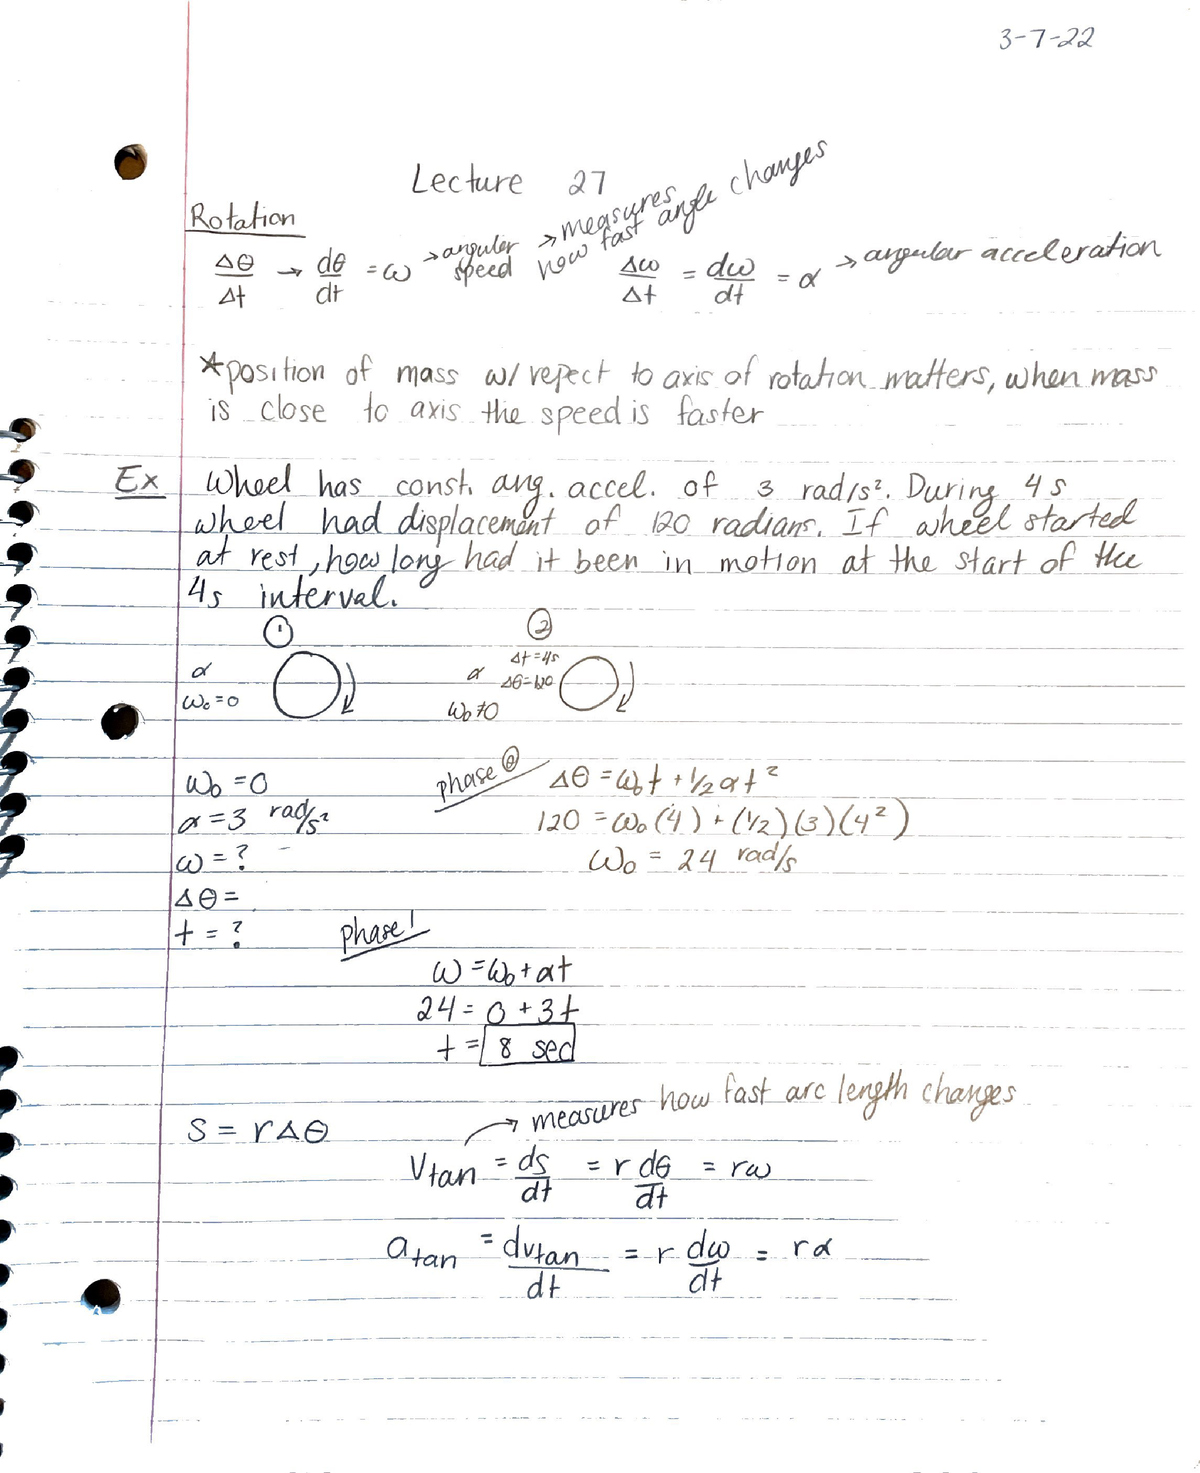 3-7-22
Lecture 27
Rotation
Δθ/Δt → dθ/dt = ω → angular speed → measures how fast angle changes
Δω/Δt = dω/dt = α → angular acceleration
*position of mass w/ repect to axis of rotation matters, when mass
is close to axis the speed is faster
Ex Wheel has const. ang. accel. of 3 rad/s². During 4s
wheel had displacement of 120 radians. If wheel started
at rest, how long had it been in motion at the start of the
4s interval.
① ②
α
ω₀=0
Δt=4s
α Δθ=120
ω₀≠0
ω₀=0
α=3 rad/s²
ω=?
Δθ=
t=?
phase ②
Δθ=ω₀t+1/2αt²
120=ω₀(4)+(1/2)(3)(4²)
ω₀=24 rad/s
phase 1
ω=ω₀+αt
24=0+3t
t=8 sec
S=rΔθ
→ measures how fast arc length changes
Vtan = ds/dt = r dθ/dt = rω
atan = dvtan/dt = r dω/dt = rα